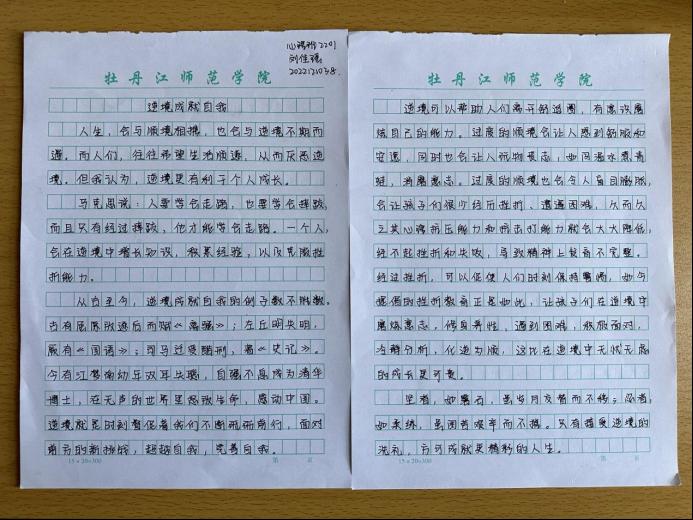 心理师2201
刘佳强
2022121038
牡丹江师范学院
逆境成就自我
人生，会与顺境相携，也会与逆境不期而
遇。而人们，往往希望生活顺遂，从而厌恶逆
境。但我认为，逆境更有利于个人成长。
马克思说：人要学会走路，也要学会摔跤，
而且只有经过摔跤，他才能学会走路。一个人，
会在逆境中增长知识，积累经验，以及克服挫
折能力。
从古至今，逆境成就自我的例子数不胜数。
古有屈原放逐后而赋《离骚》；左丘明失明，
厥有《国语》；司马迁受膑刑，著《史记》。
今有江梦南幼年双耳失聪，自强不息成为清华
博士，在无声的世界里怒放生命，感动中国。
逆境就是时刻督促着我们不断砥砺前行，面对
前方的新挑战，超越自我，完善自我。
15×20=300
第 页
牡丹江师范学院
逆境可以帮助人们离开舒适圈，有意识磨
炼自己的能力。过度的顺境会让人感到舒服和
安逸，同时也会让人玩物丧志，如同温水煮青
蛙，消磨意志。过度的顺境也会令人盲目膨胀，
会让孩子们很少经历挫折、遭遇困难，久而久
之其心理抗压能力和抗击打能力就会大大降低，
经不起挫折和失败，导致精神上发育不完整。
经过挫折，可以促使人们时刻保持警惕，如今
提倡的挫折教育正是如此，让孩子们在逆境中
磨炼意志，修身养性，遇到困难，积极面对，
冷静分析，化逆为顺，这比在逆境中无忧无虑
的成长更可贵。
坚者，如磐石，虽岁月交替而不移；忍者，
如柔练，虽困苦艰辛而不摧。只有接受逆境的
洗礼，方可成就更精彩的人生。
15×20=300
第 页